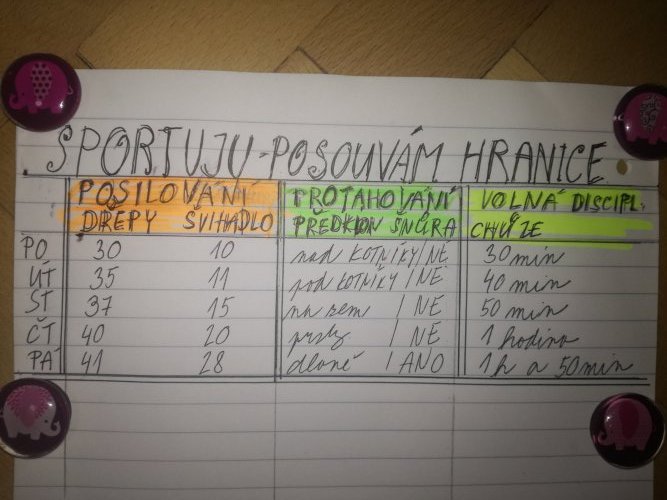 SPORTUJU - POSOUVÁM HRANICE
POSILOVÁNÍ PROTAHOVÁNÍ VOLNÁ DISCIPL.
DŘEPY ŠVIHADLO PŘEDKLON ŠŇŮRA CHŮZE
PO 30 10 nad KOTNÍKY/NE 30 min
ÚT 35 11 pod KOTNÍKY/NE 40 min
ST 37 15 na zem / NE 50 min
ČT 40 20 prsty / NE 1 hodina
PÁ 41 28 dlaně / ANO 1h a 50min